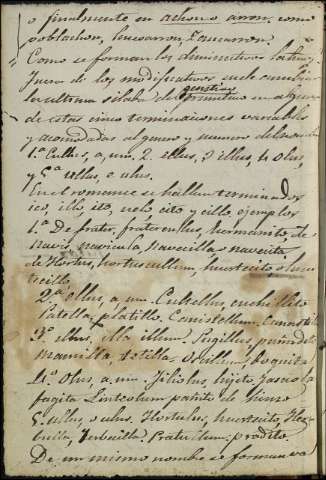 o finalmente en achon o arron. como
poblachon, bucarron,
Como se forman los diminutivos latinos
fuera de los modificativos suele cambiar
la ultima silaba del genitivo en alguna
de estas cinco terminaciones variables
y acomodadas al genero y numero del nombre
1.ª Culus, a, um. 2. ellus, 3 illus, 4 olus,
y 5.ª ullus, o ulus.
En el romance se hallan terminados
ico, illo, ito, uelo cito y cillo ejemplos
1.ª De frater, fraterculus, hermanito de
navis, navicula navecilla o navecita
de Hortus, hortusculum, huertecito o huer
tecillo.
2.ª ellus, a, um. Cultellus, cuchillito
Patella, platillo. Canistellum. Canastillo
3.ª illus, illa illum. Pugillus, puñadito
Mamilla, tetilla. Oscillum, boquita
4.ª Olus, a, um. Filiolus, hijito.
fagita Linteolum pañito de lienzo
5. Ullus, o ulus. Hortulus, huertesito, Her
bulla, Yerbecilla. Pratullum. pradito.
De un mismo nombre se forman va